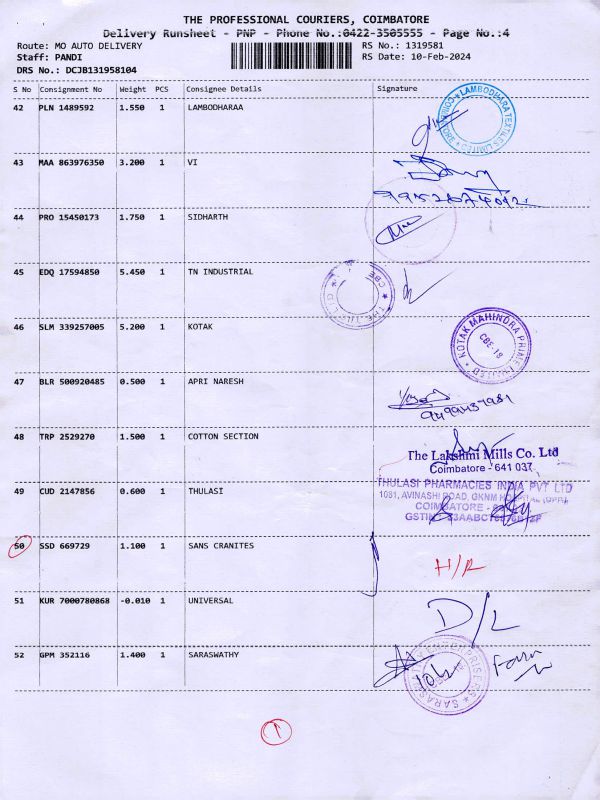 THE PROFESSIONAL COURIERS, COIMBATORE
Delivery Runsheet - PNP - Phone No.:0422-3505555 - Page No.:4
Route: MO AUTO DELIVERY RS No.: 1319581
Staff: PANDI RS Date: 10-Feb-2024
DRS No.: DCJB131958104
S No Consignment No Weight PCS Consignee Details Signature
42 PLN 1489592 1.550 1 LAMBODHARAA
LAMBODHARA TEXTILES LIMITED
43 MAA 863976350 3.200 1 VI
44 PRO 15450173 1.750 1 SIDHARTH
45 EDQ 17594850 5.450 1 TN INDUSTRIAL
CBE
46 SLM 339257005 5.200 1 KOTAK
KOTAK MAHINDRA PRIME LIMITED
CBE-18
47 BLR 500920485 0.500 1 APRI NARESH
48 TRP 2529270 1.500 1 COTTON SECTION
The Lakshmi Mills Co. Ltd
Coimbatore - 641 037
49 CUD 2147856 0.600 1 THULASI
THULASI PHARMACIES INDIA PVT LTD
1081, AVINASHI ROAD, GKNM HOSPITAL
COIMBATORE
50 SSD 669729 1.100 1 SANS CRANITES
H/R
51 KUR 7000780868 -0.010 1 UNIVERSAL
D/L
52 GPM 352116 1.400 1 SARASWATHY
1